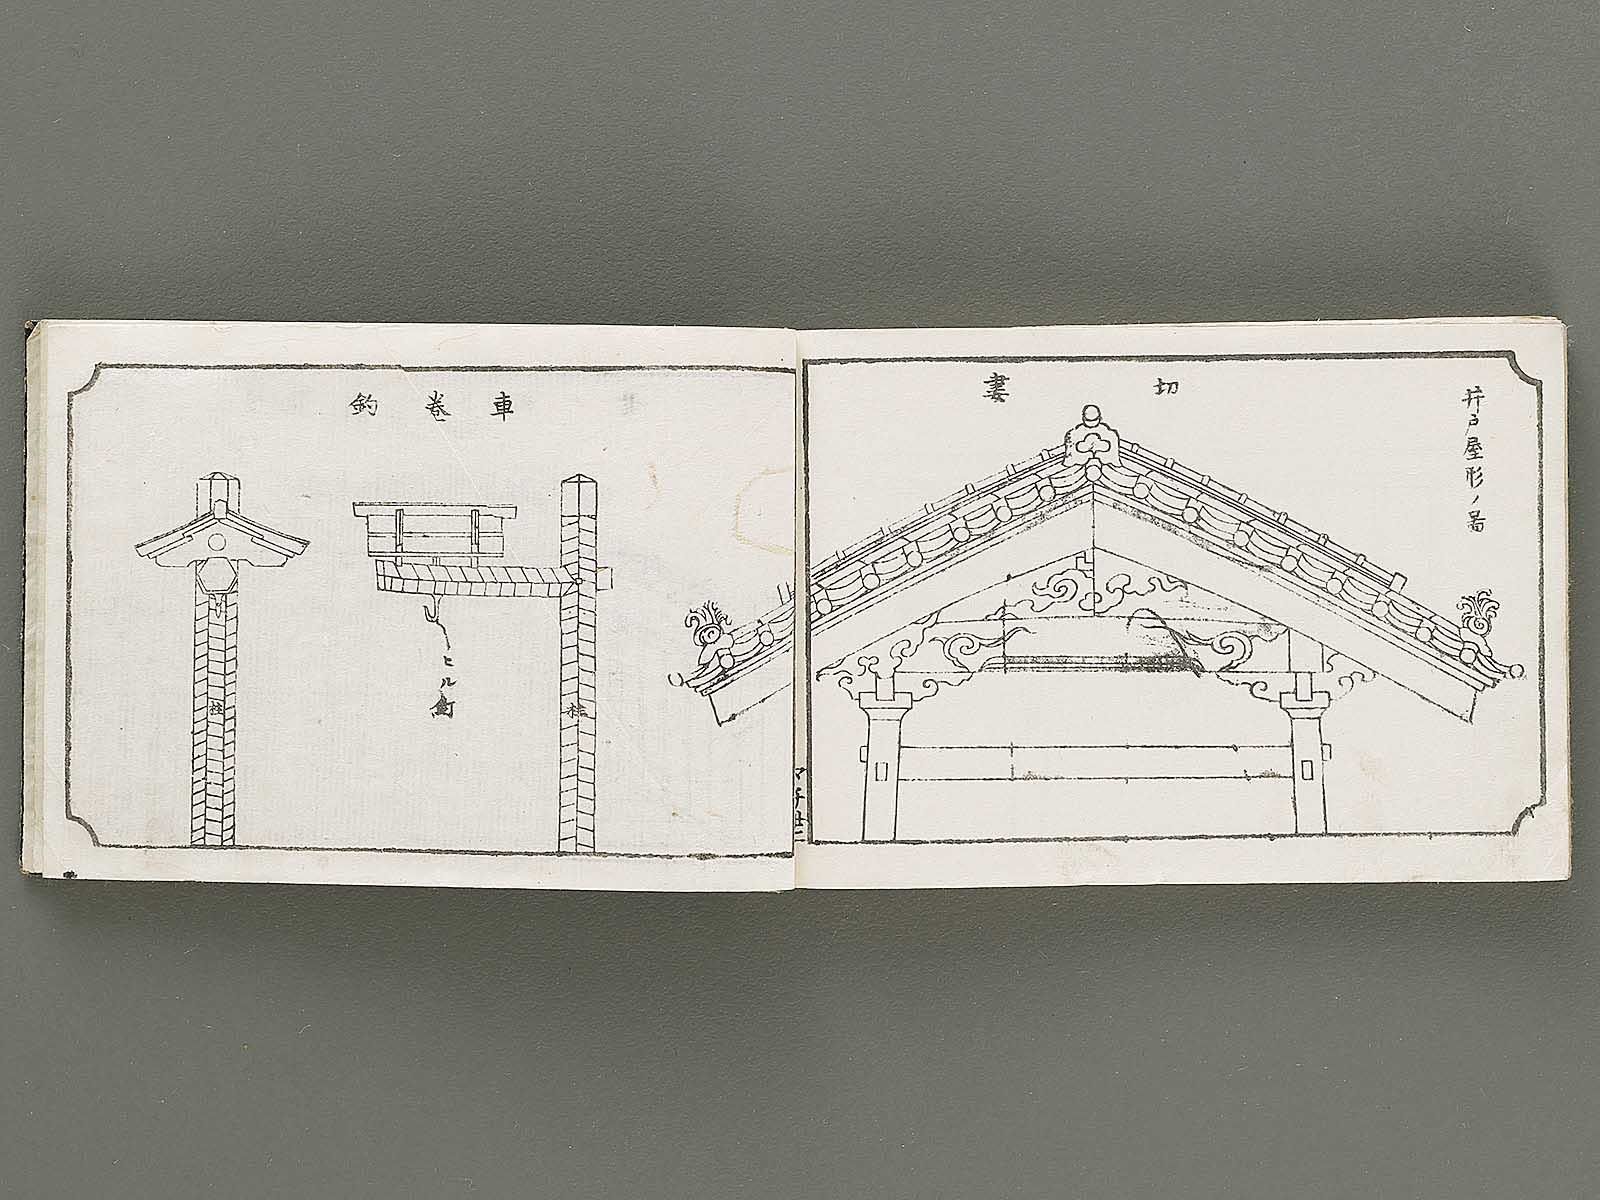 井戸屋形ノ啚
切妻
マチ廿二
車巻釣
ヒル
柱
柱